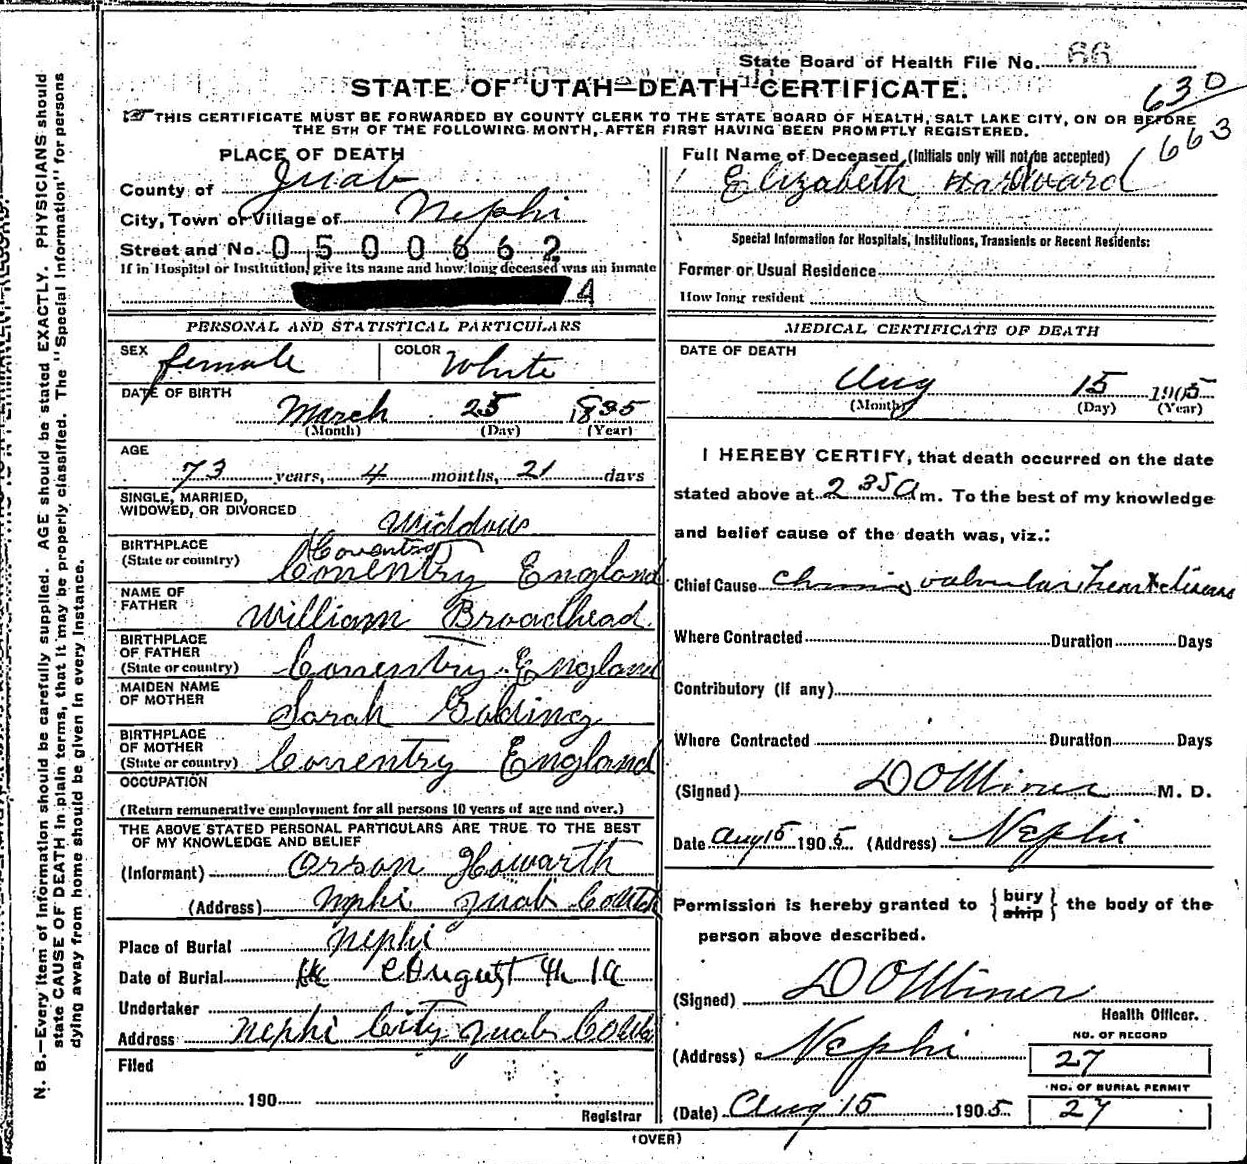 State Board of Health File No. 66
STATE OF UTAH—DEATH CERTIFICATE.
630
THIS CERTIFICATE MUST BE FORWARDED BY COUNTY CLERK TO THE STATE BOARD OF HEALTH, SALT LAKE CITY, ON OR BEFORE
THE 5TH OF THE FOLLOWING MONTH, AFTER FIRST HAVING BEEN PROMPTLY REGISTERED.
663
PLACE OF DEATH
County of Juab
City, Town or Village of Nephi
Street and No. 0500662
If in Hospital or Institution, give its name and how long deceased was an inmate
4
PERSONAL AND STATISTICAL PARTICULARS
SEX female COLOR White
DATE OF BIRTH
March 25 1835
(Month) (Day) (Year)
AGE
73 years, 4 months, 21 days
SINGLE, MARRIED,
WIDOWED, OR DIVORCED Widdow
BIRTHPLACE Coventry
(State or country) Coventry England
NAME OF
FATHER William Broadhead
BIRTHPLACE
OF FATHER
(State or country) Coventry England
MAIDEN NAME
OF MOTHER Sarah Golding
BIRTHPLACE
OF MOTHER
(State or country) Coventry England
OCCUPATION
(Return remunerative employment for all persons 10 years of age and over.)
THE ABOVE STATED PERSONAL PARTICULARS ARE TRUE TO THE BEST
OF MY KNOWLEDGE AND BELIEF
(Informant) Orson Howarth
(Address) Nephi Juab
Place of Burial Nephi
Date of Burial August
Undertaker
Address Nephi City Juab
Filed
190
Registrar
Full Name of Deceased (Initials only will not be accepted)
Elizabeth
Special Information for Hospitals, Institutions, Transients or Recent Residents:
Former or Usual Residence
How long resident
MEDICAL CERTIFICATE OF DEATH
DATE OF DEATH
Aug 15 1905
(Month) (Day) (Year)
I HEREBY CERTIFY, that death occurred on the date
stated above at 2 35 a m. To the best of my knowledge
and belief cause of the death was, viz.:
Chief Cause valvular heart
Where Contracted Duration Days
Contributory (If any)
Where Contracted Duration Days
(Signed) D O Miner M. D.
Date Aug 15 1905 (Address) Nephi
Permission is hereby granted to { bury ship } the body of the
person above described.
(Signed) D O Miner
Health Officer.
(Address) Nephi
NO. OF RECORD
27
NO. OF BURIAL PERMIT
(Date) Aug 15 1905 27
(OVER)
N. B.—Every item of information should be carefully supplied. AGE should be stated EXACTLY. PHYSICIANS should
state CAUSE OF DEATH in plain terms, that it may be properly classified. The "Special Information" for persons
dying away from home should be given in every instance.